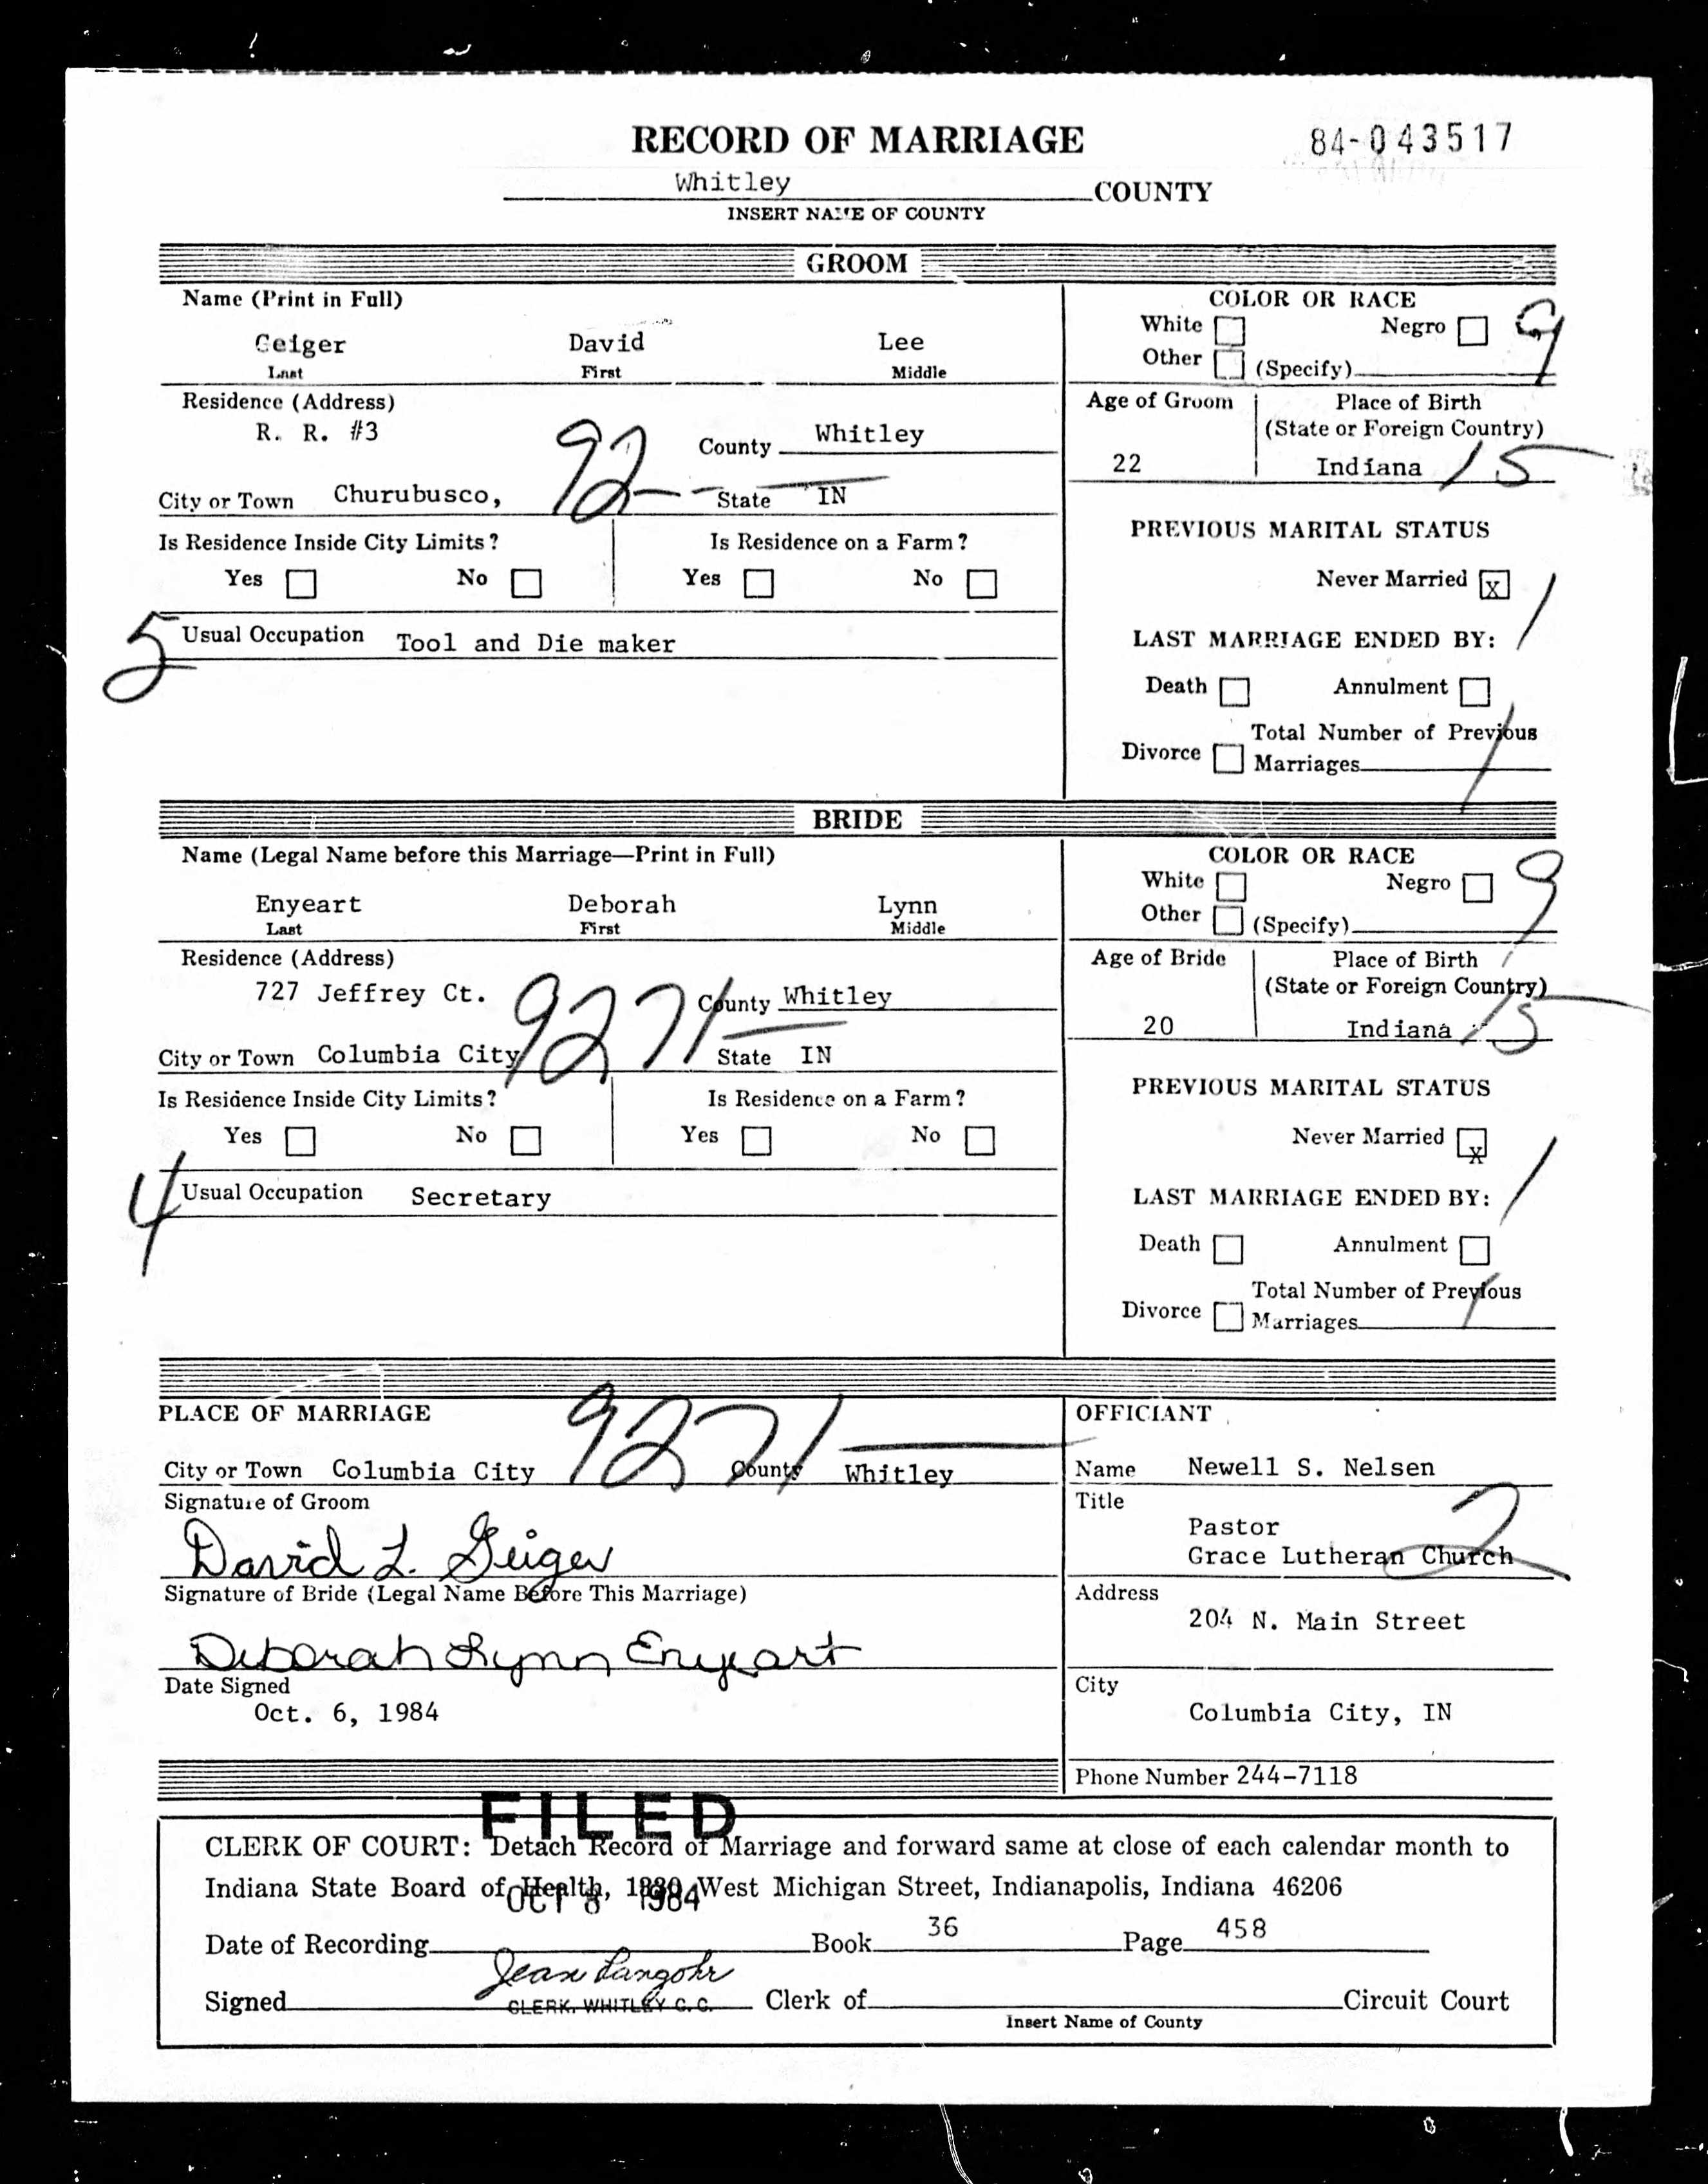 RECORD OF MARRIAGE
84-043517
Whitley COUNTY
INSERT NAME OF COUNTY
GROOM
Name (Print in Full)
Geiger David Lee
Last First Middle
COLOR OR RACE
White Negro 9
Other (Specify)
Residence (Address)
R. R. #3
County Whitley
City or Town Churubusco, 92 State IN
Age of Groom
22
Place of Birth
(State or Foreign Country)
Indiana 15
Is Residence Inside City Limits?
Yes No
Is Residence on a Farm?
Yes No
PREVIOUS MARITAL STATUS
Never Married X 1
5 Usual Occupation Tool and Die maker
LAST MARRIAGE ENDED BY:
Death Annulment
Divorce Total Number of Previous
Marriages 1
BRIDE
Name (Legal Name before this Marriage—Print in Full)
Enyeart Deborah Lynn
Last First Middle
COLOR OR RACE
White Negro 9
Other (Specify)
Residence (Address)
727 Jeffrey Ct.
County Whitley
City or Town Columbia City 9271 State IN
Age of Bride
20
Place of Birth
(State or Foreign Country)
Indiana 15
Is Residence Inside City Limits?
Yes No
Is Residence on a Farm?
Yes No
PREVIOUS MARITAL STATUS
Never Married X 1
4 Usual Occupation Secretary
LAST MARRIAGE ENDED BY:
Death Annulment
Divorce Total Number of Previous
Marriages 1
PLACE OF MARRIAGE
City or Town Columbia City 9271 County Whitley
Signature of Groom
David L. Geiger
Signature of Bride (Legal Name Before This Marriage)
Deborah Lynn Enyeart
Date Signed
Oct. 6, 1984
OFFICIANT
Name Newell S. Nelsen
Title
Pastor 2
Grace Lutheran Church
Address
204 N. Main Street
City
Columbia City, IN
Phone Number 244-7118
FILED
CLERK OF COURT: Detach Record of Marriage and forward same at close of each calendar month to
Indiana State Board of Health, 1330 West Michigan Street, Indianapolis, Indiana 46206
OCT 8 1984
Date of Recording Book 36 Page 458
Signed Jean Langohr Clerk of Circuit Court
CLERK, WHITLEY C. C.
Insert Name of County